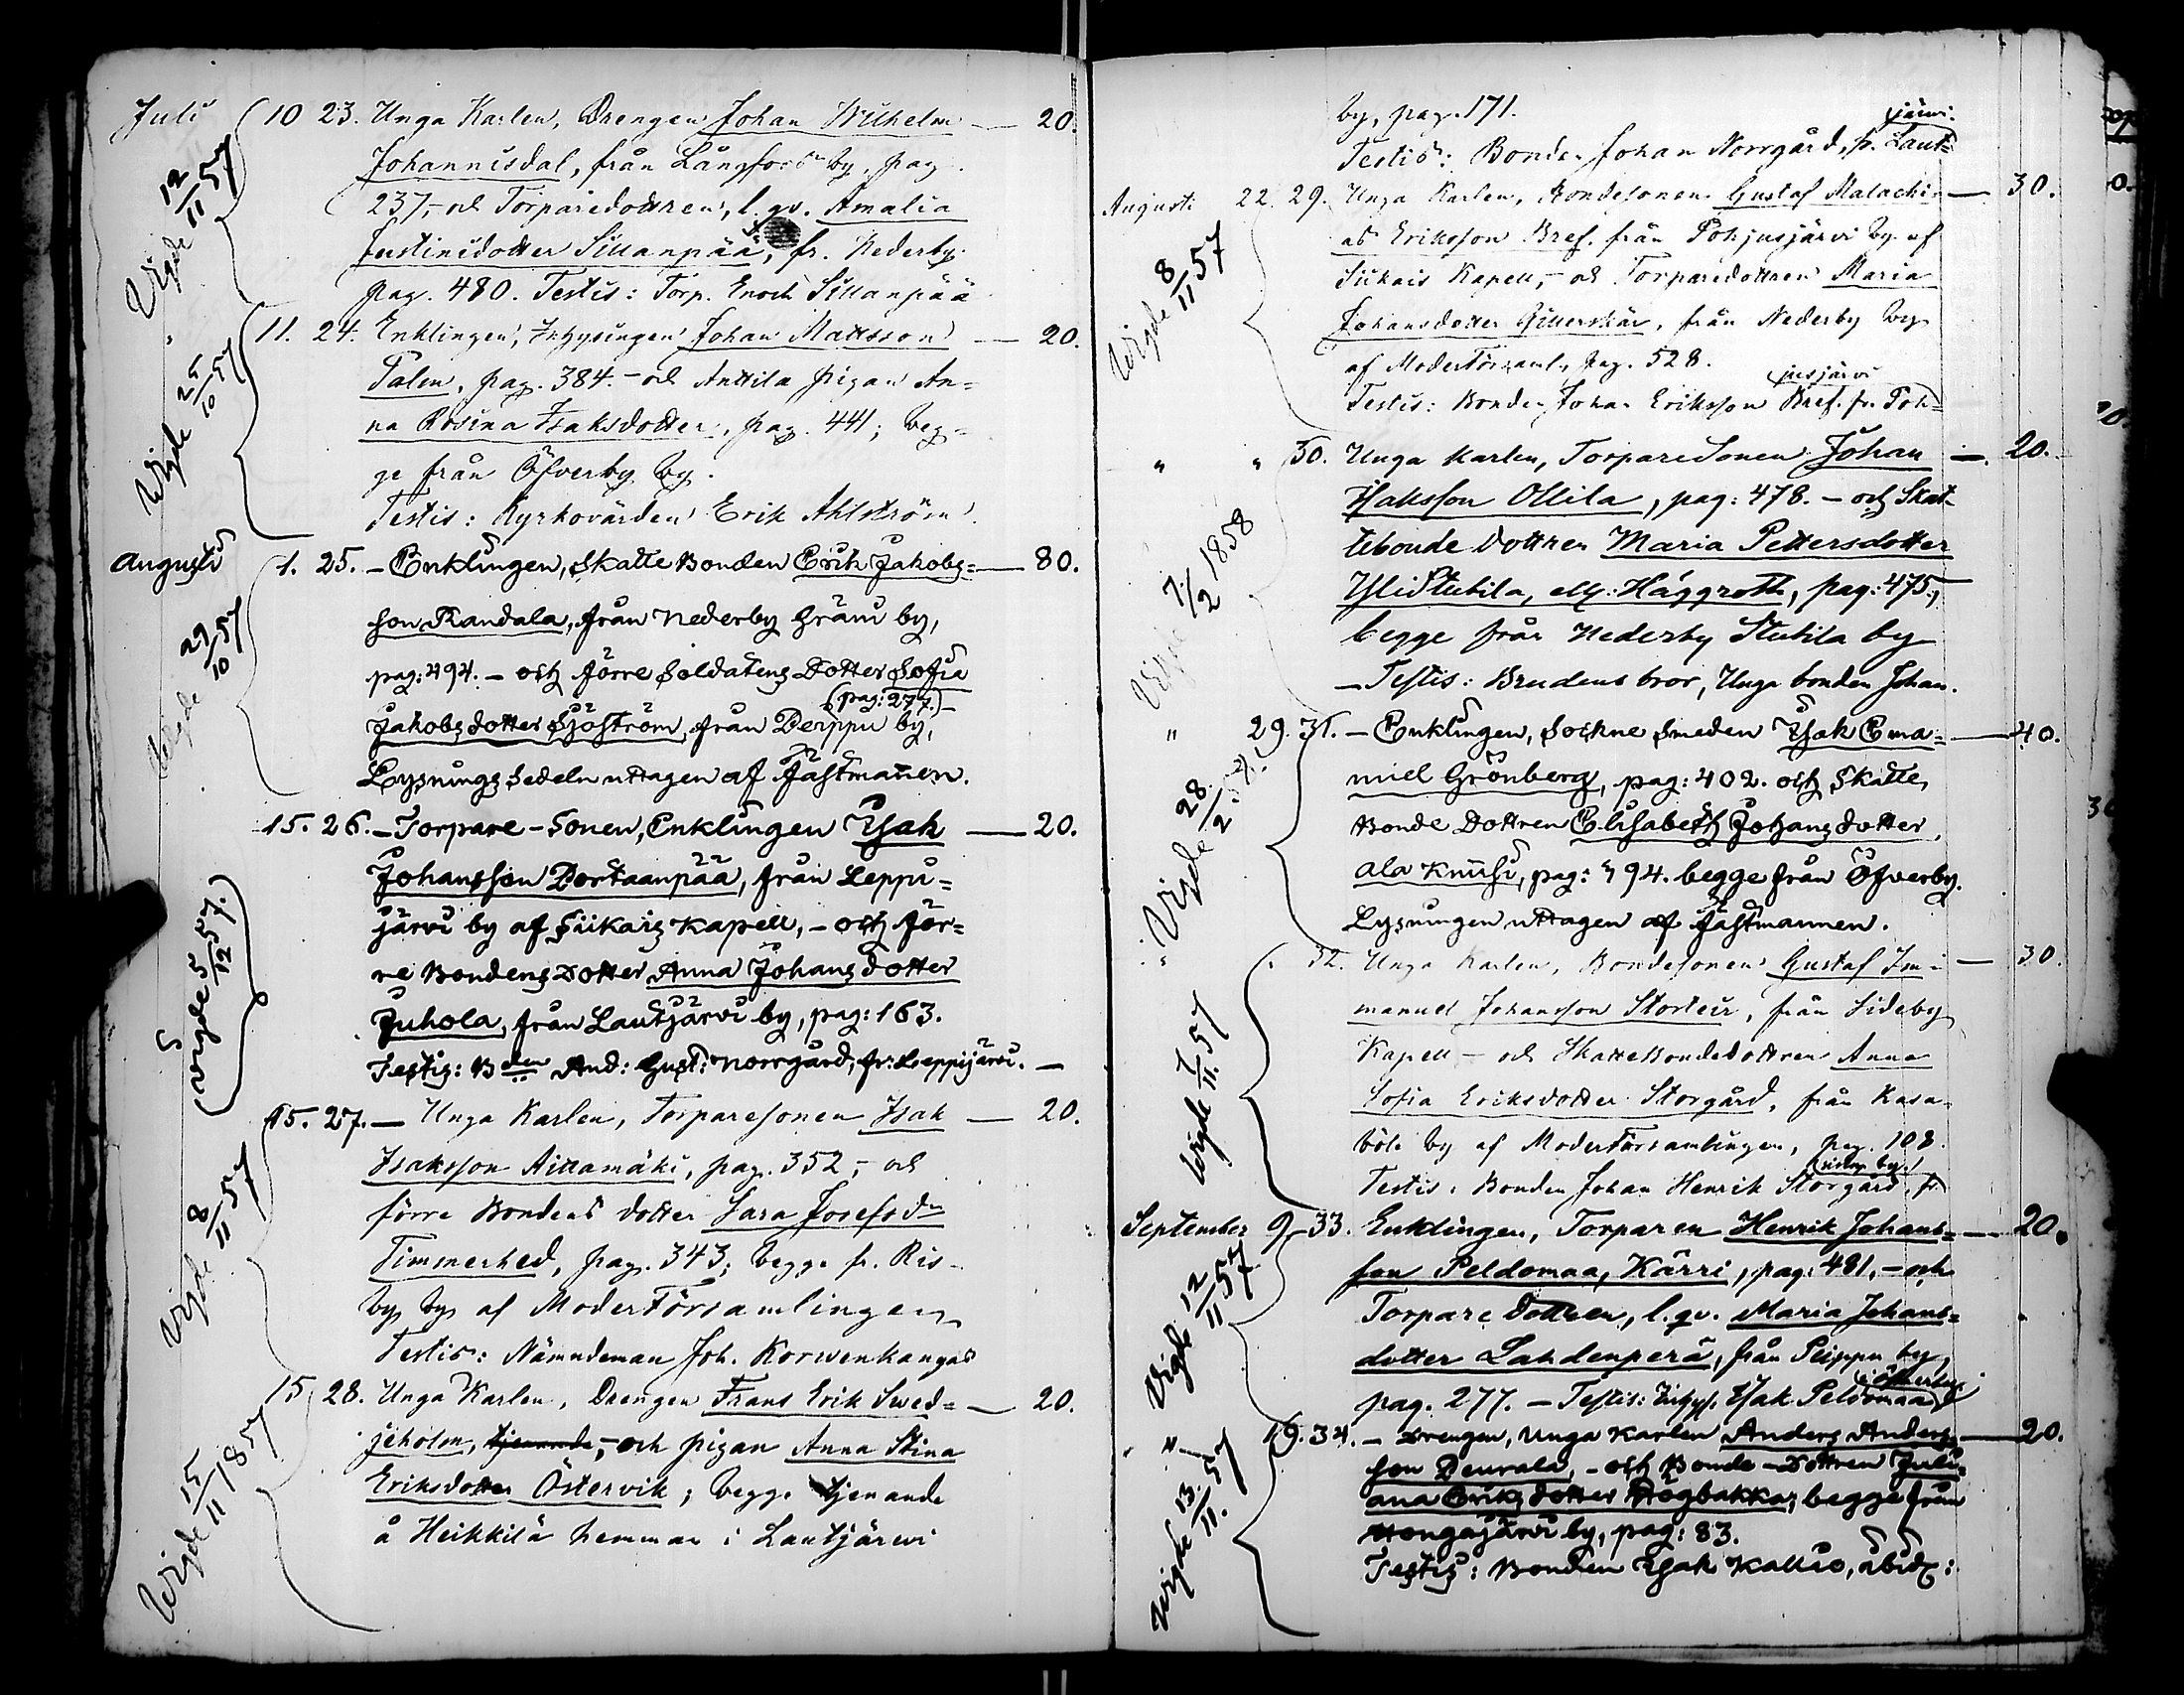 Juli 10 23. Unga Karlen, Drengen Johan Wilhelm — 20.
Johannisdal, från Långfors by, pag.
237,- och Torparedottren, l. qv. Amalia
Justinsdotter Sillanpää, fr. Nederby
pag. 480. Testis: Torp. Enoch Sillanpää
Vigde 12/11 57
" 11. 24. Enklingen, Inhysingen Johan Mattsson — 20.
Palen, pag. 384. - och Anttila pigan An=
na Rosina Isaksdotter, pag. 441; beg=
ge från Öfverby by.
Testis: Kyrkovärden Erik Ahlström.
Vigde 25/10 57
Augusti 1. 25. — Enklingen, Skatte Bonden Erik Jakobs= — 80.
son Randala, från Nederby Gräni by,
pag: 494. — och förre Soldatens Dotter Sofia
(pag: 277.)
Jakobsdotter Sjöström, från Peippu by,
Lysnings Sedeln uttagen af Fästmannen.
Vigde 29/10 57
15. 26. — Torpare-Sonen, Enklingen Isak — 20.
Johansson Portaanpää, från Leppi=
järvi by af Siikais Kapell, - och för=
re Bondens Dotter Anna Johansdotter
Juhola, från Lautjärvi by, pag: 163.
Testis: Bden And: Gust: Norrgård, fr: Leppijärvi. —
(vigde 5/12 57.)
15. 27. — Unga Karlen, Torparesonen Isak — 20.
Isaksson Aittamäki, pag. 352,- och
förre Bondens dotter Sara Josefsdr
Timmerhed, pag. 343; begge fr. Ris-
by by af Moderförsamlingen
Testis: Nämndeman Joh. Korwenkangas
Vigde 8/11 57
15 28. Unga Karlen, Drengen Frans Erik Swed= — 20.
jeholm, tjenande,- och pigan Anna Stina
Eriksdotter Östervik; begge tjenande
å Heikkilä hemman i Lautjärwi
Vigde 15/11 1857
by, pag. 171.
järwi.
Testis: Bonden Johan Norrgård, fr. Laut=
Augusti 22. 29. Unga Karlen, Bondesonen Gustaf Malachi= — 30.
as Eriksson Bref. från Pohjusjärvi by af
Siikais Kapell,- och Torparedottren Maria
Johansdotter Gitterskär, från Nederby by
af Moderförsaml., pag. 528.
jusjärvi
Testis: Bonden Johan Eriksson Bref. fr. Poh=
Vigde 8/11 57
" " 30. Unga Karlen, Torparesonen Johan — 20.
Isaksson Ollila, pag: 478. - och Skat-
tebonde Dottren Maria Pettersdotter
YliStubila, ell: Häggroth, pag: 475,
begge från Nederby Stubila by
— Testis: Brudens bror, Unga bonden Johan.
Vigde 7/2 1858
" 29. 31. — Enklingen, Sockne Smeden Isak Ema= — 40.
niel Grönberg, pag: 402. och Skatte
Bonde Dottren Elisabeth Johansdotter
Ala Knusi, pag: 494. begge från Öfverby.
Lysningen uttagen af Fästmannen.
Vigde 28/2 58.
" 32. Unga Karlen, Bondesonen Gustaf Im= — 30.
manuel Johansson Storteir, från Sideby
Kapell - och Skattebondedottren Anna
Sofia Eriksdotter Storgård, från Kasa-
böle by af Moderförsamlingen, pag. 108.
Testis: Bonden Johan Henrik Storgård, fr.
Vigde 1/11. 57
September 9. 33. Enklingen, Torparen Henrik Johans= — 20.
son Peldomaa, Kärri, pag: 481, - och
Torpare Dottren, l. qv. Maria Johans=
dotter Lahdenperä, från Peippu by,
i Öfverby
pag. 277. — Testis: Inhys. Isak Peldomaa
Vigde 12/11 57
" 19. 34. — Drengen, Unga Karlen Anders Anders= — 20.
son Peurala, - och Bonde-Dottren Juli=
ana Eriksdotter Högbakka, begge från
Hongajärvi by, pag: 83.
Testis: Bonden Isak Kallio, ibid:
Vigde 13./11. 57